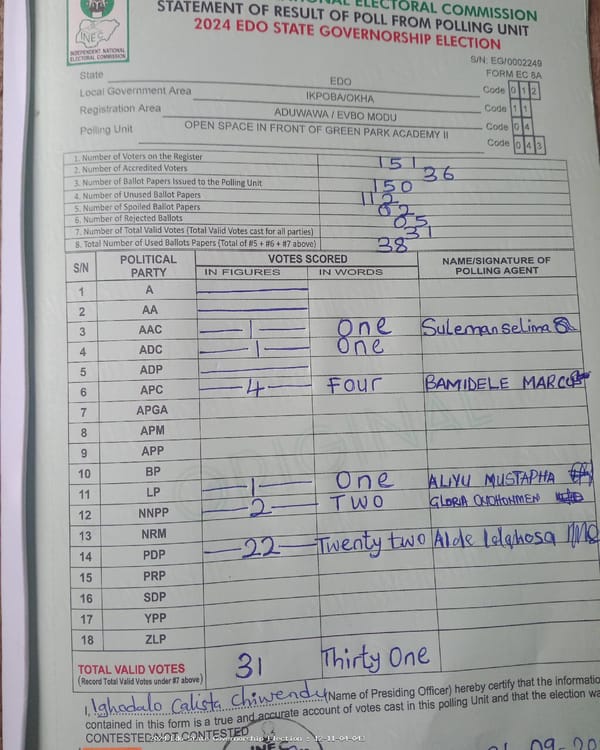 NATIONAL ELECTORAL COMMISSION
STATEMENT OF RESULT OF POLL FROM POLLING UNIT
2024 EDO STATE GOVERNORSHIP ELECTION
INEC
INDEPENDENT NATIONAL
ELECTORAL COMMISSION
S/N: EG/0002249
FORM EC 8A
State EDO Code 0 1 2
Local Government Area IKPOBA/OKHA Code 1 1
Registration Area ADUWAWA / EVBO MODU Code 0 4
Polling Unit OPEN SPACE IN FRONT OF GREEN PARK ACADEMY II Code 0 4 3
1. Number of Voters on the Register 151
2. Number of Accredited Voters 36
3. Number of Ballot Papers Issued to the Polling Unit 150
4. Number of Unused Ballot Papers 112
5. Number of Spoiled Ballot Papers 02
6. Number of Rejected Ballots 05
7. Number of Total Valid Votes (Total Valid Votes cast for all parties) 31
8. Total Number of Used Ballots Papers (Total of #5 + #6 + #7 above) 38
S/N POLITICAL PARTY VOTES SCORED NAME/SIGNATURE OF POLLING AGENT
IN FIGURES IN WORDS
1 A
2 AA
3 AAC 1 One Suleman Selima
4 ADC 1 One
5 ADP
6 APC 4 Four BAMIDELE MARCUS
7 APGA
8 APM
9 APP
10 BP
11 LP 1 One ALIYU MUSTAPHA
12 NNPP 2 TWO GLORIA
13 NRM
14 PDP 22 Twenty two
15 PRP
16 SDP
17 YPP
18 ZLP
ORIGINAL
TOTAL VALID VOTES 31 Thirty One
(Record Total Valid Votes under #7 above)
I, Ighodalo Calista Chiwendy (Name of Presiding Officer) hereby certify that the informatio
contained in this form is a true and accurate account of votes cast in this polling Unit and that the election wa
CONTESTED CONTESTED
2024 Edo State Governorship Election : 12-11-04-043
INEC
09-20